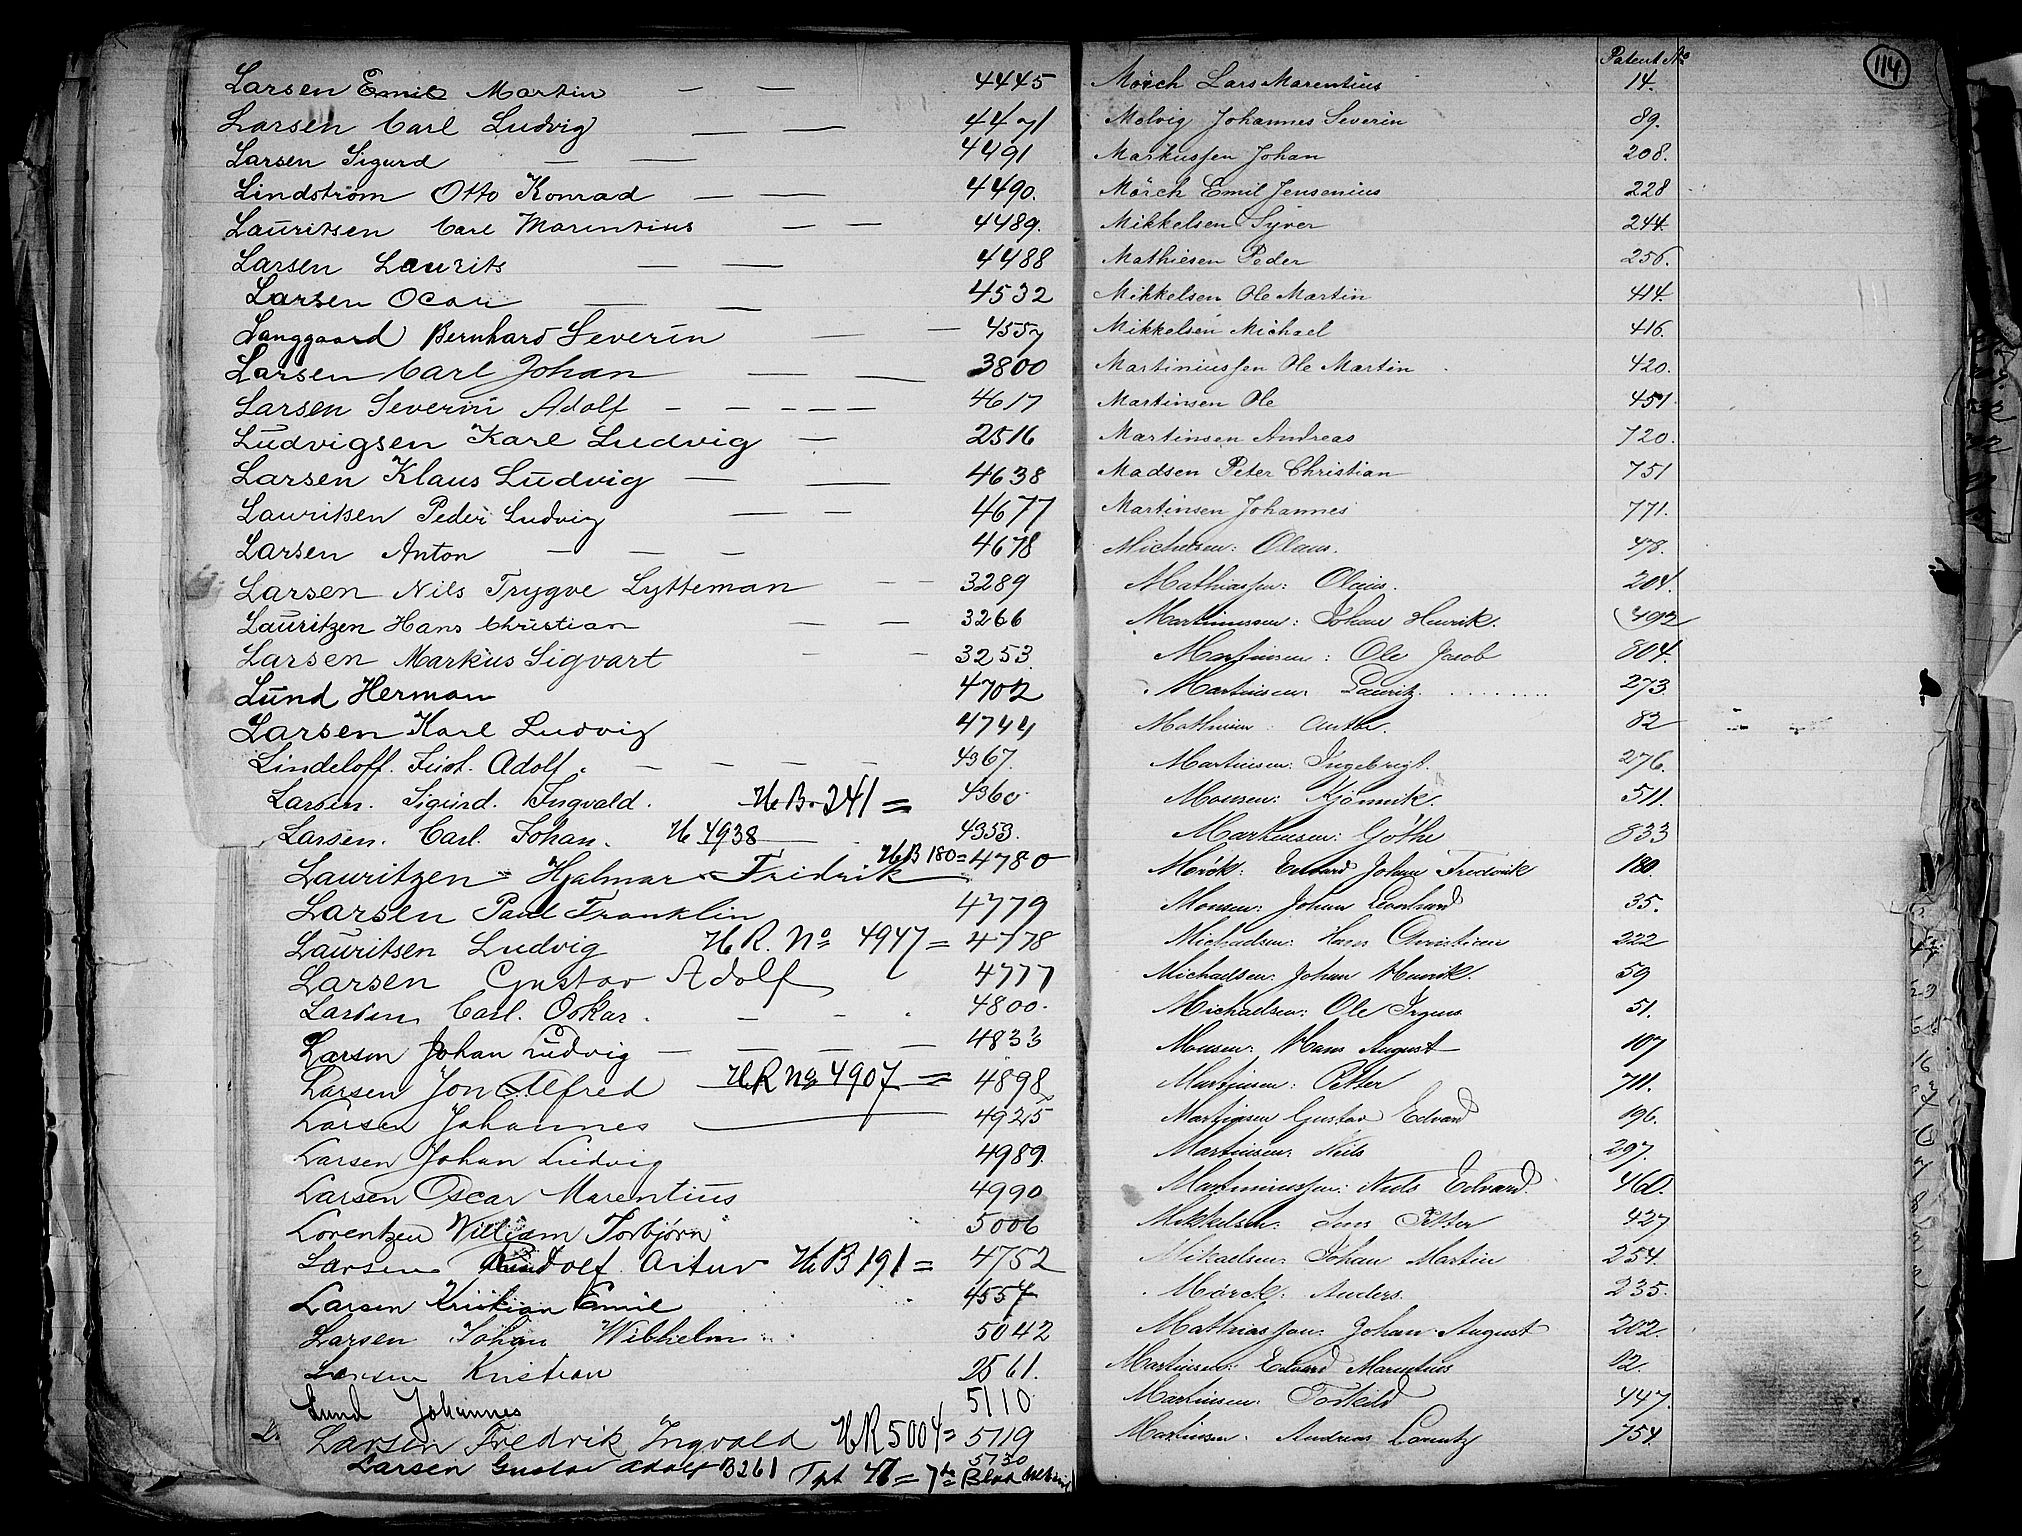 Larsen Emil Martin — — 4445
Larsen Carl Ludvig — — 4471
Larsen Sigurd — — 4491
Lindström Otto Konrad — — 4490.
Lauritsen Carl Marentius — — 4489.
Larsen Laurits — — 4488
Larsen Ocar — — 4532
Langgaard Bernhard Severin — — 4557
Larsen Carl Johan — — 3800
Larsen Severin Adolf — — — — — 4617
Ludvigsen Karl Ludvig — 2516
Larsen Klaus Ludvig — — 4638
Lauritsen Peder Ludvig — — 4677
Larsen Anton — — — 4678
Larsen Nils Trygve Lytteman — — 3289
Lauritzen Hans Christian — — 3266
Larsen Markus Sigvart — — 3253
Lund Herman 4702
Larsen Karl Ludvig 4744
Lindeloff. Just. Adolf. — — — — 4367.
Larsen. Sigurd. Ingvald. H B. 241 = 4360
Larsen. Carl. Johan. H 4938 — 4353.
Lauritzen = Hjalmar = Fridrik H B 180 = 4780
Larsen Paul Franklin 4779
Lauritsen Ludvig H R. No 4947 = 4778
Larsen Gustav Adolf 4777
Larsen Carl. Oskar. — — 4800.
Larsen Johan Ludvig — — — — 4833
Larsen Jon Alfred H R No 4907 = 4898
Larsen Johannes 4925
Larsen Johan Ludvig 4989.
Larsen Oscar Marentius 4990
Lorentzen William Torbjörn 5006
Larsen Adolf Artur H B 191 = 4752
Larsen Kristian Emil 4557
Larsen Johan Wilhelm 5042
Larsen Kristian 2561.
Lund Johannes 5110
L. Larsen Fredrik Ingvald H R 5004 = 5119
Larsen Gustav Adolf B 261 5130
Patent No
114
Mörch Lars Marentius 14.
Molvig Johannes Severin 89.
Markussen Johan 208.
Mörch Emil Jensenius 228
Mikkelsen Syver 244.
Mathiesen Peder 256.
Mikkelsen Ole Martin 414.
Mikkelsen Michael 416.
Martiniussen Ole Martin 420.
Martinsen Ole 451.
Martinsen Andreas 720.
Madsen Peter Christian 751
Martinsen Johannes 771.
Michelsen: Olaus. 478.
Mathiassen: Olaus. 204.
Martinussen: Johan Henrik. 492
Martinsen: Ole Jacob 804.
Martinsen: Lauritz. 273
Mathisen: 82
Martinsen: Ingebrigt. 276.
Monsen: 511.
Martinsen: Göthe 833
Mörck: Edvard Johan Fredrik 180.
Monsen: Johan Leonhard 35.
Michaelsen: Hans Christian 222
Michaelsen: Johan Henrik. 59
Michaelsen: Ole Irgens 51.
Monsen: Hans August 107
Martinsen: Petter 711.
Martinsen Gustav Edvard 196.
Martinsen: Niels 297.
Martiniussen: Niels Edvard. 460.
Mikkelsen: Jens Petter 427
Mikaelsen: Johan Martin 254.
Mörck: Anders. 235.
Mathiassen: Johan August 202
Martinsen: Edvard Marentius 12
Martinsen: Torkild 447.
Martinsen: Andreas Lorentz 754.